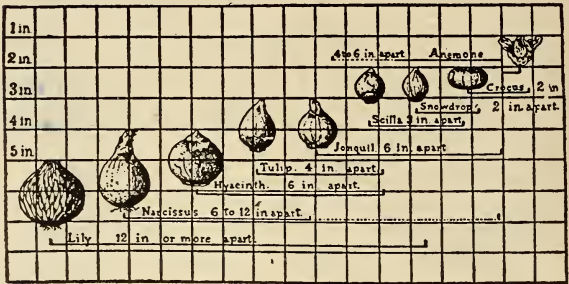 1 in
2 in
4 to 6 in apart Anemone
3 in
Crocus 2 in
Snowdrop 2 in apart.
4 in
Scilla 3 in. apart,
5 in
Jonquil 6 in. apart
Tulip. 4 in. apart
Hyacinth. 6 in apart.
Narcissus 6 To 12 in apart.
Lily 12 in or more apart.